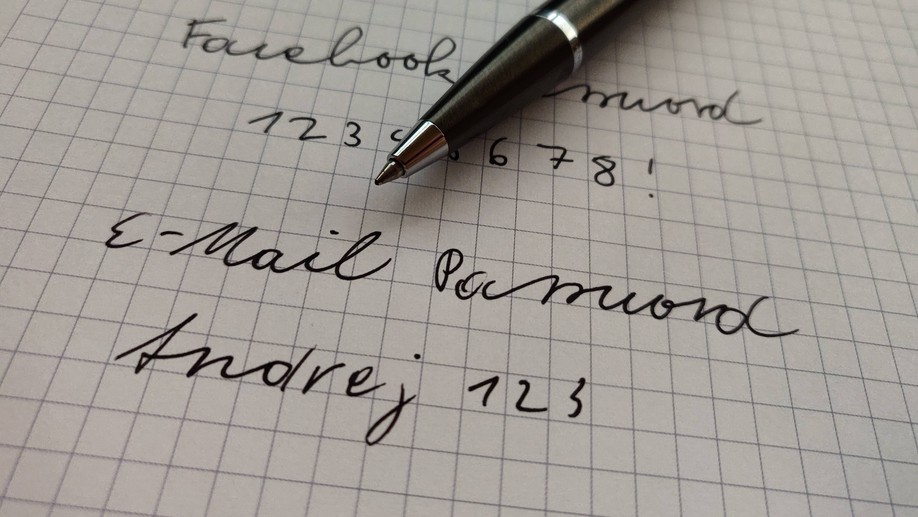 Facebook
123 678!
E-Mail Password
Andrej 123